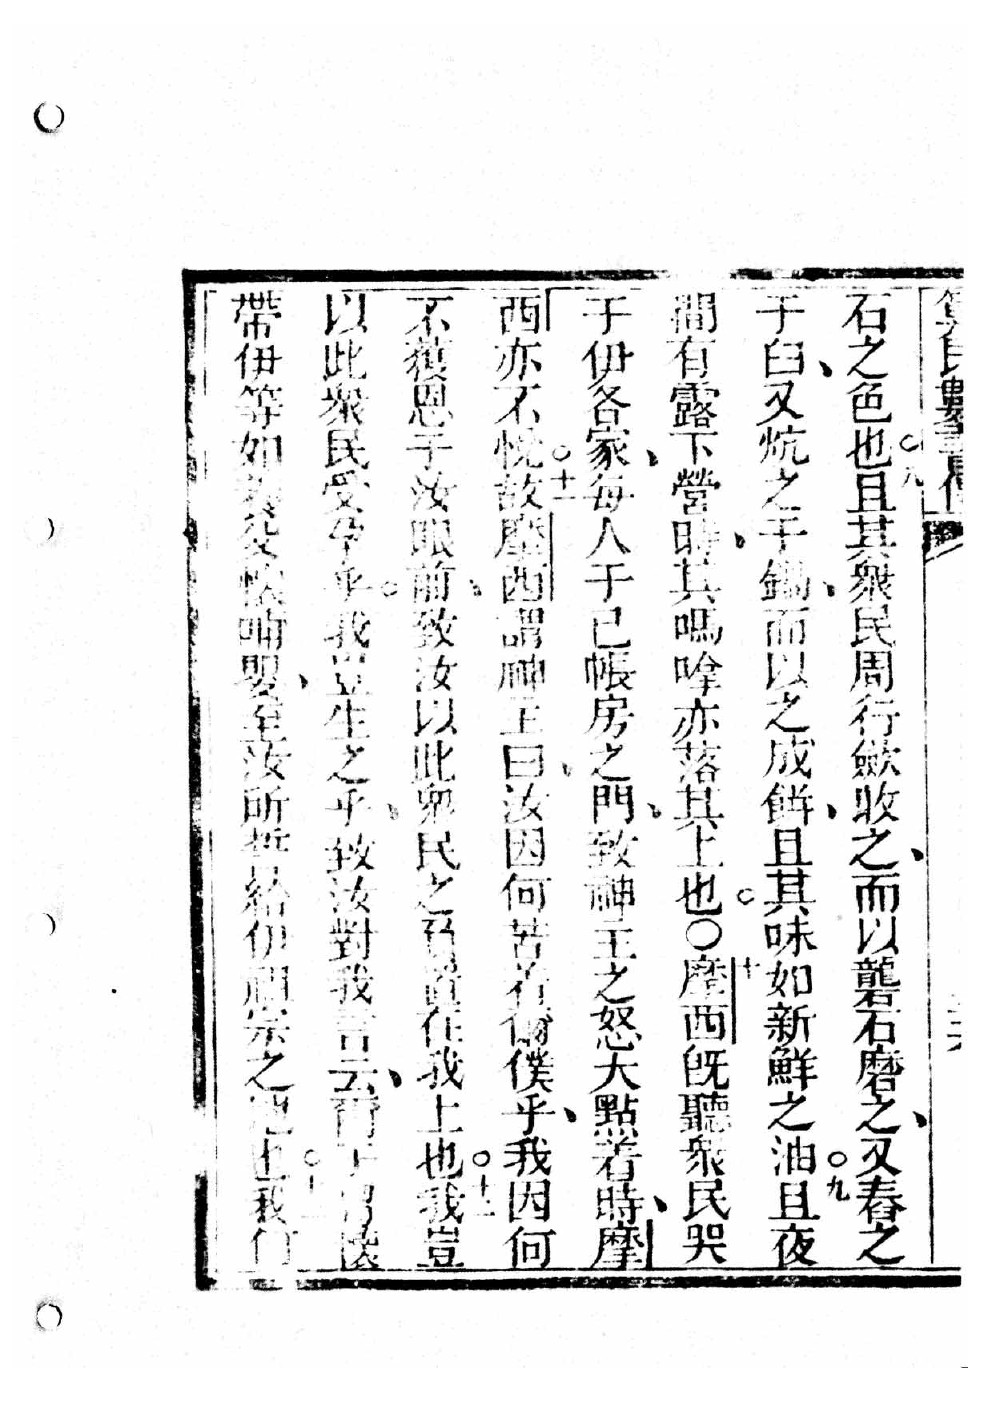 算民數書傳
石之色也○八且其衆民周行歛收之、而以礱石磨之、又舂之
于臼、又炕之于鍋、而以之成餅、且其味如新鮮之油○九且夜
間有露下營時、其嗎嗱亦落其上也○〇十摩西旣聽衆民哭
于伊各家、每人于己帳房之門、致神王之怒大點著時、摩
西亦不悅○十一故摩西謂神王曰、汝因何苦着爾僕乎、我因何
不獲恩于汝眼前、致汝以此衆民之負置在我上也○十二我豈
以此衆民受孕乎○我豈生之乎、致汝對我言云、爾于胸懷
帶伊等如 懷哺嬰、至汝所誓給伊祖宗之地也○十三我們